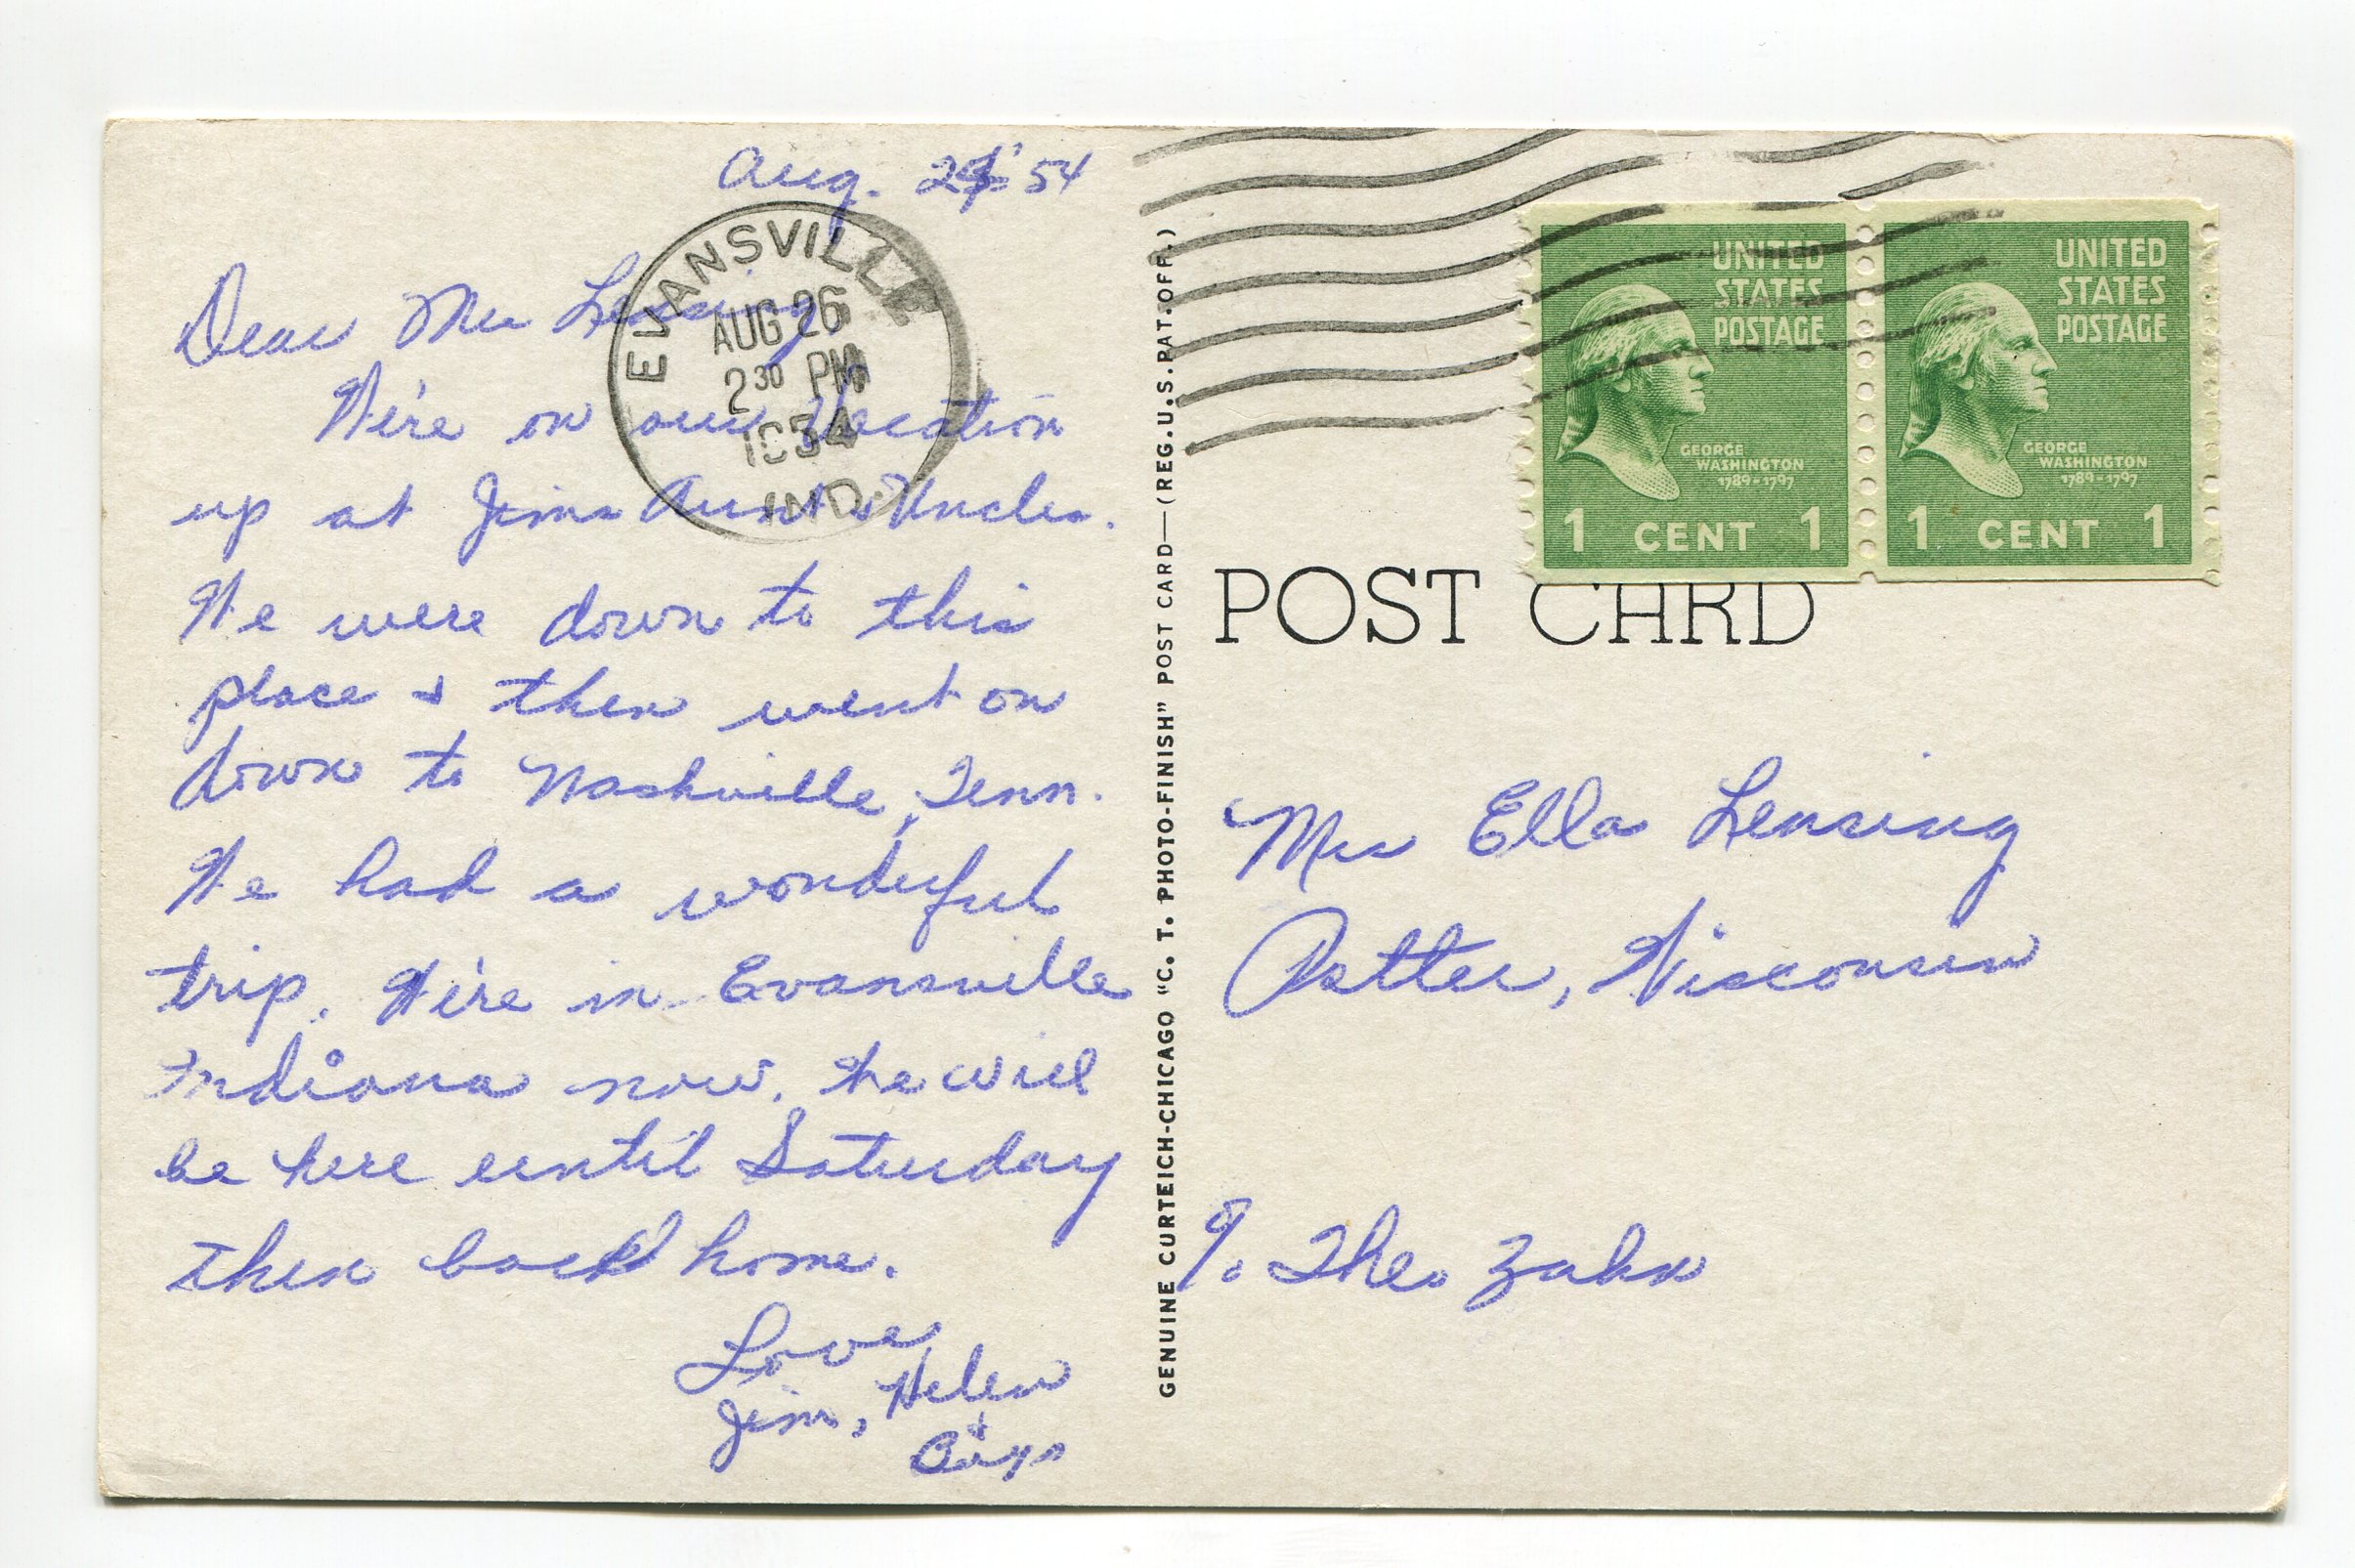 Aug. '54
Dear Mrs Lensing
We're on our Vacation
up at Jims Aunt & Uncles.
We were down to this
place & then went on
down to Nashville, Tenn.
We had a wonderful
trip. We're in Evansville
Indiana now. We will
be here until Saturday
then back home.
Love
Jim, Helen
&
Boys
EVANSVILLE
AUG 26
2 30 PM
1954
IND.
GENUINE CURTEICH-CHICAGO "C. T. PHOTO-FINISH" POST CARD—(REG.U.S.PAT.OFF.)
UNITED
STATES
POSTAGE
GEORGE
WASHINGTON
1789-1797
1 CENT 1
UNITED
STATES
POSTAGE
GEORGE
WASHINGTON
1789-1797
1 CENT 1
POST CARD
Mrs Ella Lensing
Potter, Wisconsin
% Theo Zahn